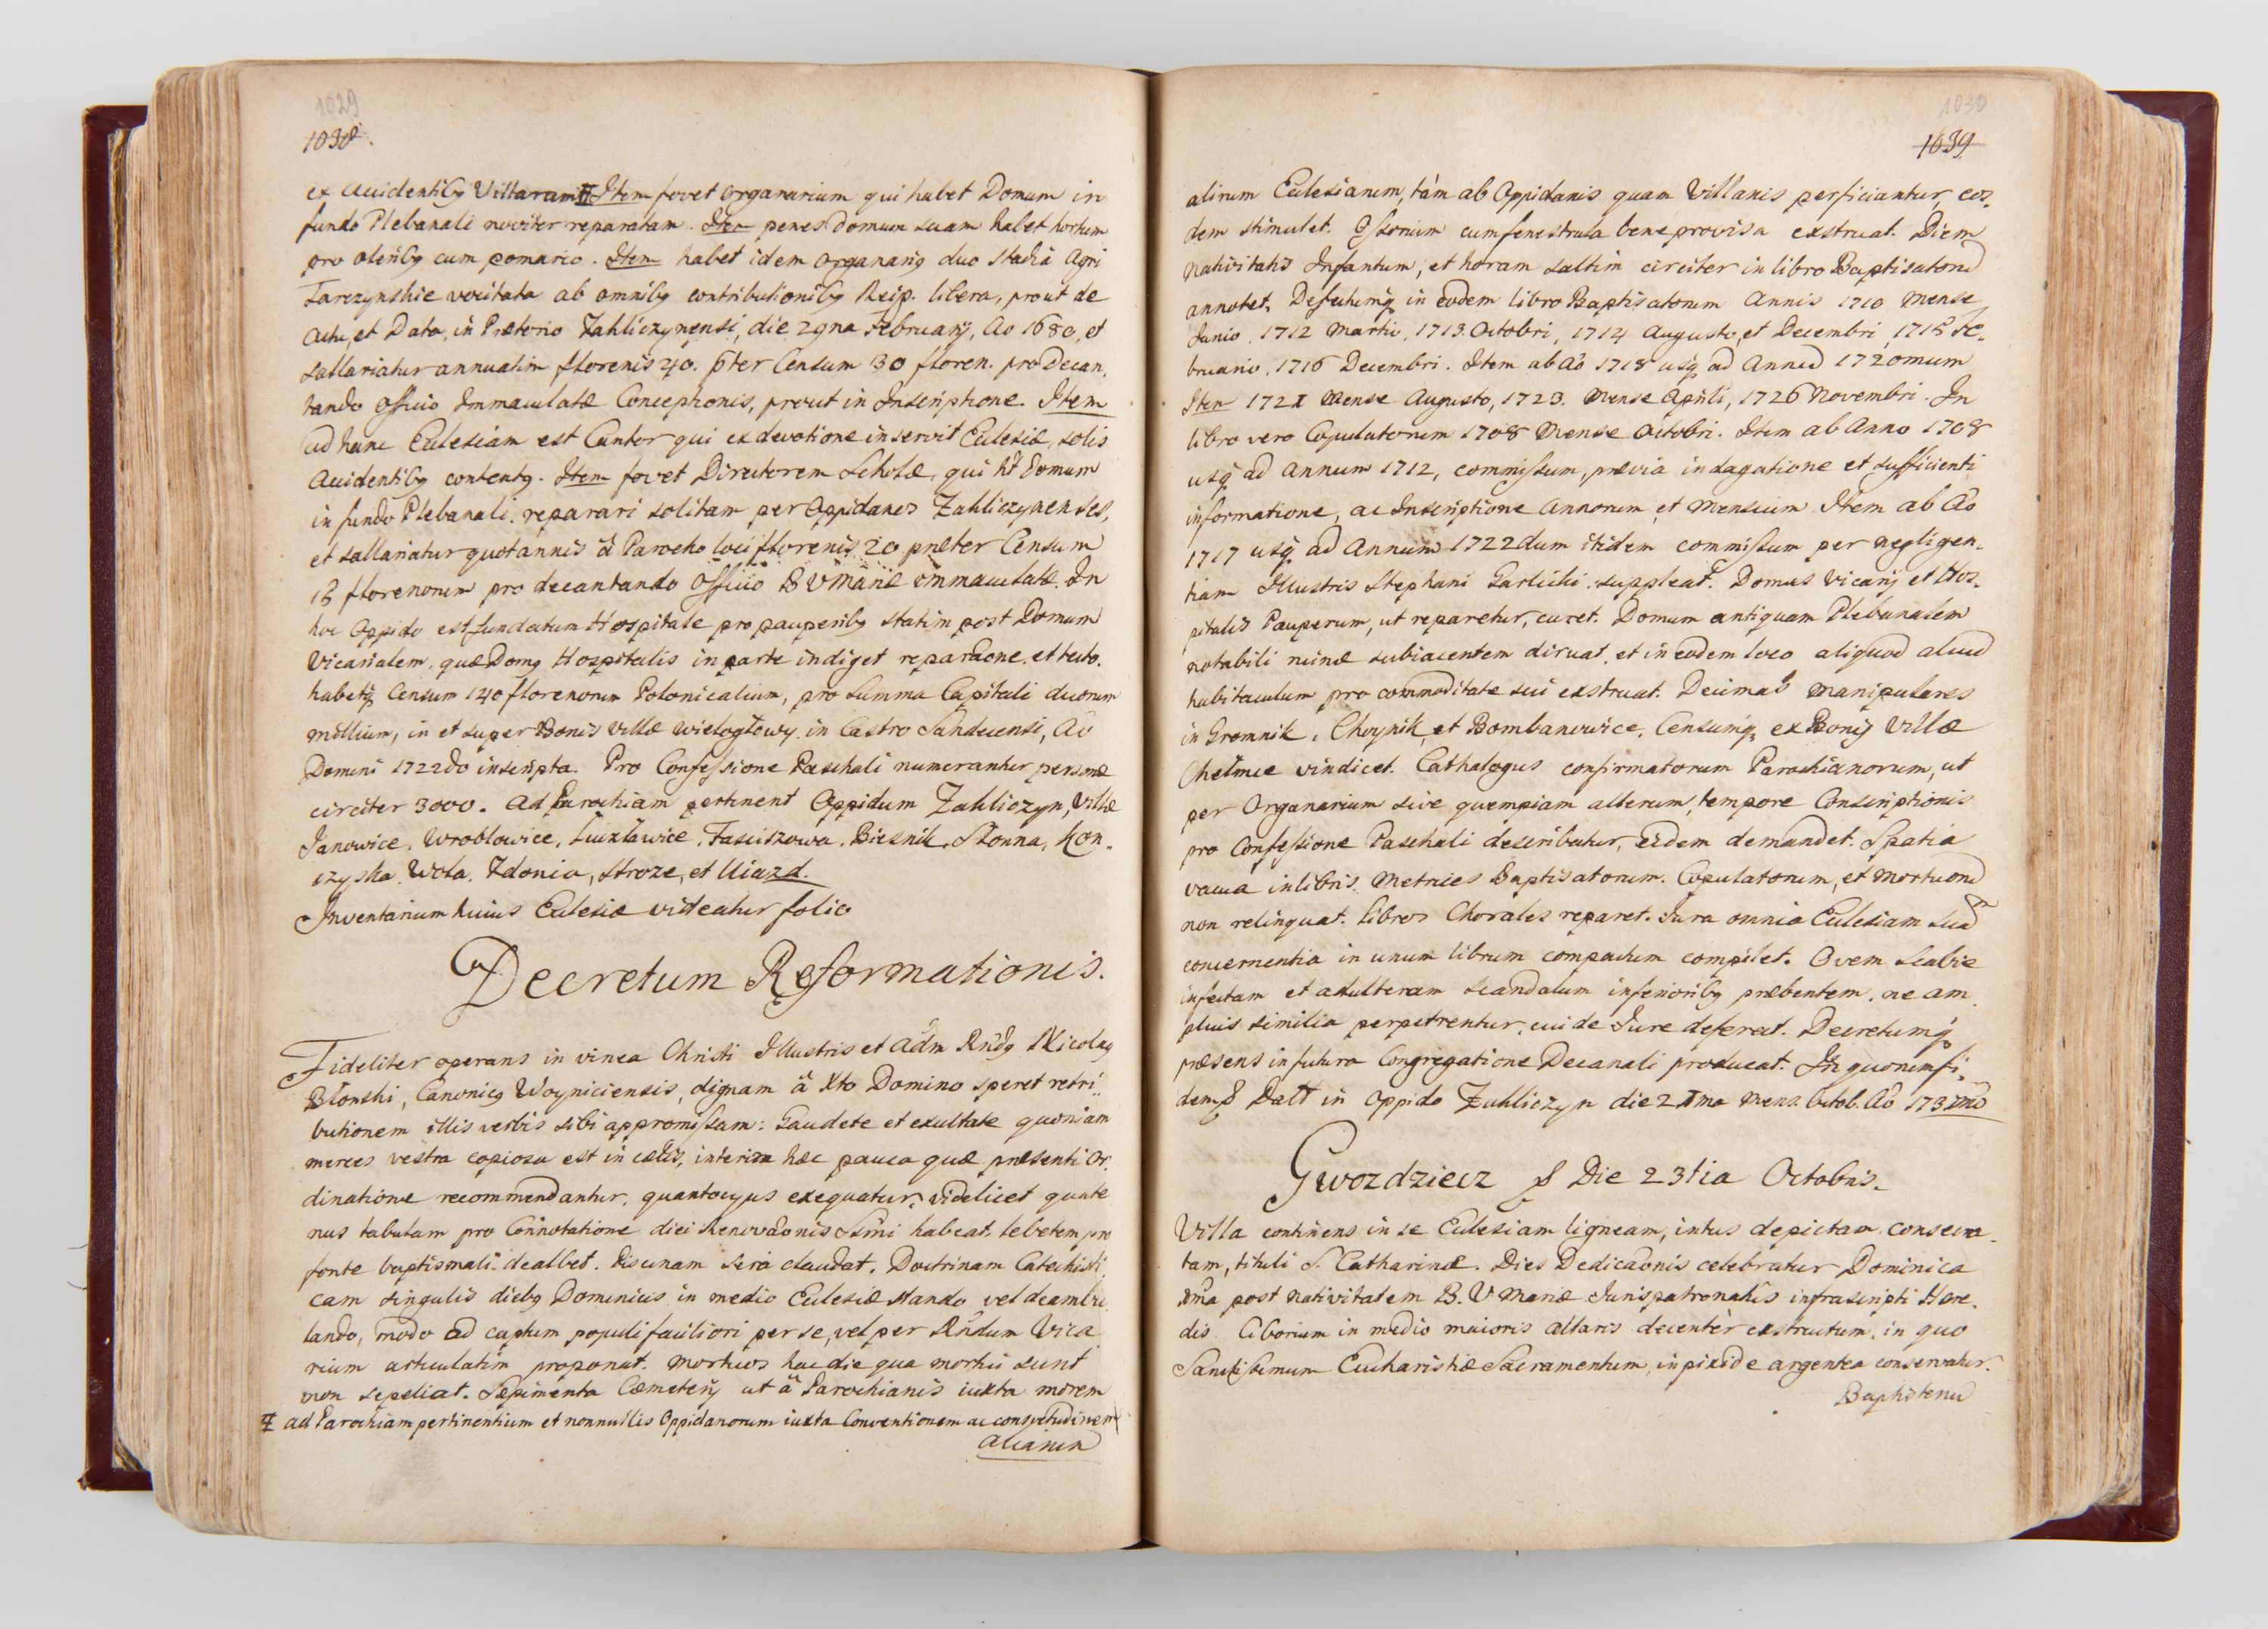 1029
1038.
ex Accidentibꝯ Villarum ⌗ Item fovet Organarium qui habet Domum in
fundo Plebanali noviter reparatam. Item penes Domum suam habet hortum
pro oleribꝯ cum pomario. Item habet idem Organariꝯ duo Stadia Agri
Tarczynskie vocitata ab omnibꝯ contributionibꝯ Reip. libera, prout de
Actu, et Data, in Prætorio Zakliczynensi, die 29na Februarij, Ao 1680, et
sallariatur annuatim florenis 40. pter Censum 30 floren. pro decan,
tando Officio Immaculatæ Conceptionis, prout in Inscriptione. Item
ad hanc Ecclesiam est Cantor qui ex devotione inservit Ecclesiæ, solis
Accidentibꝯ contentꝯ. Item fovet Directorem Scholæ, qui ht Domum
in fundo Plebanali, reparari solitam per Oppidanos Zakliczynenses,
et sallariatur quotannis à Parocho loci florenis 20 præter Censum
18 florenorum pro decantando Officio B V Mariæ immaculatæ. In
hoc Oppido est fundatum Hospitale pro pauperibꝯ statim post Domum
Vicarialem, quæ Domꝯ Hospitalis in parte indiget reparaone, et tecto.
habetq Censum 140 florenorum Polonicalium, pro Summa Capitali duorum
millium, in et super Bonis Villæ Wielogłowy in Castro Sandecensi, Ao
Domini 1722do inscripta. Pro Confessione Paschali numerantur personæ
circiter 3000. Ad Parochiam pertinent Oppidum Zakliczyn, Villæ
Janowice, Wroblowice, Luxławice, Fasciszowa, Biesnik, Słonna, Kon-
czyska, Wola, Zdonia, Stroze, et Uiazd.
Inventarium huius Ecclesiæ videatur folio
Decretum Reformationis.
Fideliter operans in vinea Christi Illustris et Adm Rndꝯ Nicolaꝯ
Błonski, Canonicꝯ Woyniciensis, dignam à Xto Domino speret retri-
butionem illis verbis sibi appromissam: Gaudete et exultate quoniam
merces vestra copiosa est in cælis, interim hæc pauca quæ præsenti Or,
dinatione recommendantur, quantocyus exequatur, videlicet quate
nus tabulam pro Connotatione diei Renovaonis Ssmi habeat. lebetem pro
fonte baptismali dealbet. Piscinam sera claudat. Doctrinam Catechisti,
cam singulis diebꝯ Dominicis in medio Ecclesiæ stando vel deambu
lando, modo ad captum populi faciliori per se, vel per Rndum Vica
rium articulatim proponat. Mortuos hac die qua mortui sunt
non sepeliat. Sæpimenta Cæmeterij ut à Parochianis iuxta morem
⌗ ad Parochiam pertinentium et nonnullis Oppidanorum iuxta Conventionem ac consvetudinem
alianum
1030
1039
alirum Ecclesiarum, tàm ab Oppidanis quam Villanis perficiantur, eos-
dem stimulet. Ossorium cum fenestrula bene provisa exstruat. Diem
Nativitatis Infantum, et horam saltim circiter in libro Baptisatorum
annotet, Defectumq in eodem libro Baptisatorum Annis 1710 Mense
Junio, 1712 Martii, 1713 Octobri, 1714 Augusto, et Decembri, 1715 Fe-
bruario, 1716 Decembri. Item ab Ao 1718 usq ad Annum 1720mum
Item 1721 Mense Augusto, 1723. Mense Aprili, 1726 Novembri. In
libro vero Copulatorum 1708 Mense Octobri. Item ab Anno 1708
usq ad Annum 1712, commissum, prævia indagatione et sufficienti
informatione, ac Inscriptione Annorum et Mensium. Item ab Ao
1717 usq ad Annum 1722dum itidem commissum per negligen-
tiam Illustris Stephani Garlicki suppleat. Domus Vicarij et Hos-
pitalis Pauperum, ut reparetur, curet. Domum antiquam Plebanalem
notabili ruinæ subiacentem diruat, et in eodem loco aliquod aliud
habitaculum pro commoditate sui exstruat. Decimas manipulares
in Gromnik, Choynik, et Bombanowice, Censumq ex Bonis Villæ
Chełmce vindicet. Cathalogus confirmatorum Parochianorum, ut
per Organarium sive quempiam alterum, tempore Conscriptionis
pro Confessione Paschali describatur, eidem demandet. Spatia
vacua in libris Metrices Baptisatorum, Copulatorum, et Mortuorum
non relinquat. Libros Chorales reparet. Jura omnia Ecclesiam suam
concernentia in unum librum compactum compilet. Ovem scabie
infectam et adulteram scandalum inferioribꝯ præbentem, ne am
plius similia perpetrentur, cui de Jure deferat. Decretumq
præsens in futura Congregatione Decanali producat. In quorum fi,
dem Datt in Oppido Zakliczyn die 21ma Mens. Octob. Ao 1731mo
Gwozdziecz Die 23tia Octobris.
Villa continens in se Ecclesiam ligneam, intus depictam, consecra-
tam, tituli S. Catharinæ. Dies Dedicaonis celebratur Dominica
ma post Nativitatem B. V Mariæ Jurispatronatus infrascripti Hære,
dis. Ciborium in medio maioris altaris decentèr exstructum, in quo
Sanctissimum Eucharistiæ Sacramentum, in pixide argentea conservatur.
Baptisterium